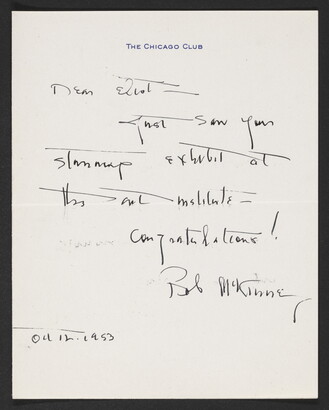 THE CHICAGO CLUB
Dear Eliot —
Just saw your
stunning exhibit at
the art institute —
Congratulations!
Bob McKinney
Oct 12. 1953